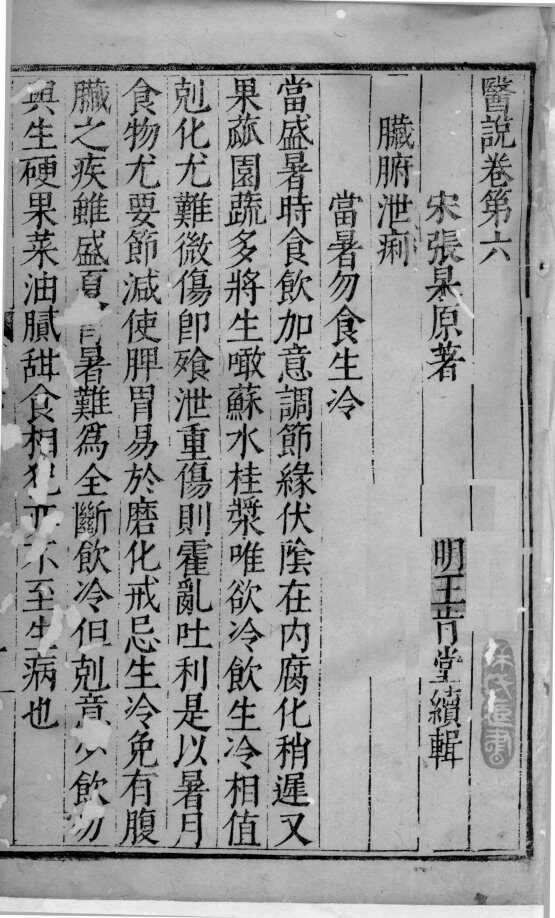 醫說卷第六
宋張杲原著　明王肯堂續輯
臟腑泄痢
當暑勿食生冷
當盛暑時食飲加意調節緣伏陰在内腐化稍遲又
果蓏園蔬多將生噉蘇水桂漿唯欲冷飲生冷相值
剋化尤難微傷即飱泄重傷則霍亂吐利是以暑月
食物尤要節減使脾胃易於磨化戒忌生冷免有腹
臟之疾雖盛夏暑難為全斷飲冷但剋意少飲勿
與生硬果菜油膩甜食相犯亦不至生病也